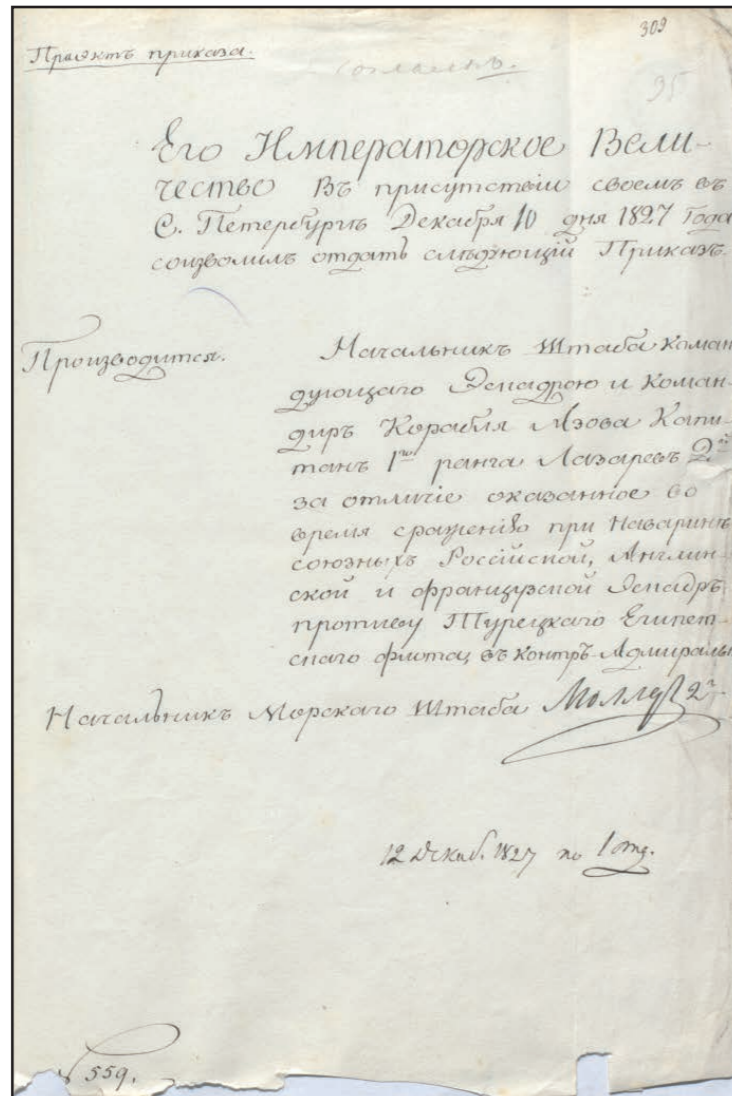 309
Проэктъ приказа.
95
Его Императорское Вели-
чество въ присутствіи своемъ въ
С. Петербургѣ Декабря 10 дня 1827 Года
соизволилъ отдать слѣдующій Приказъ.
Производится.
Начальникъ Штаба Коман
дующаго Эскадрою и Коман-
диръ Корабля Азова Капи-
танъ 1го ранга Лазаревъ 2й
за отличіе оказанное во
время сраженія при Наваринѣ
союзныхъ Россійской, Англин-
ской и французской Эскадръ
противу Турецкаго Египет-
скаго флота, въ контръ-Адмиралы
Начальникъ Морскаго Штаба Моллеръ 2й
12 Декаб. 1827 по 1 отд.
№ 559.